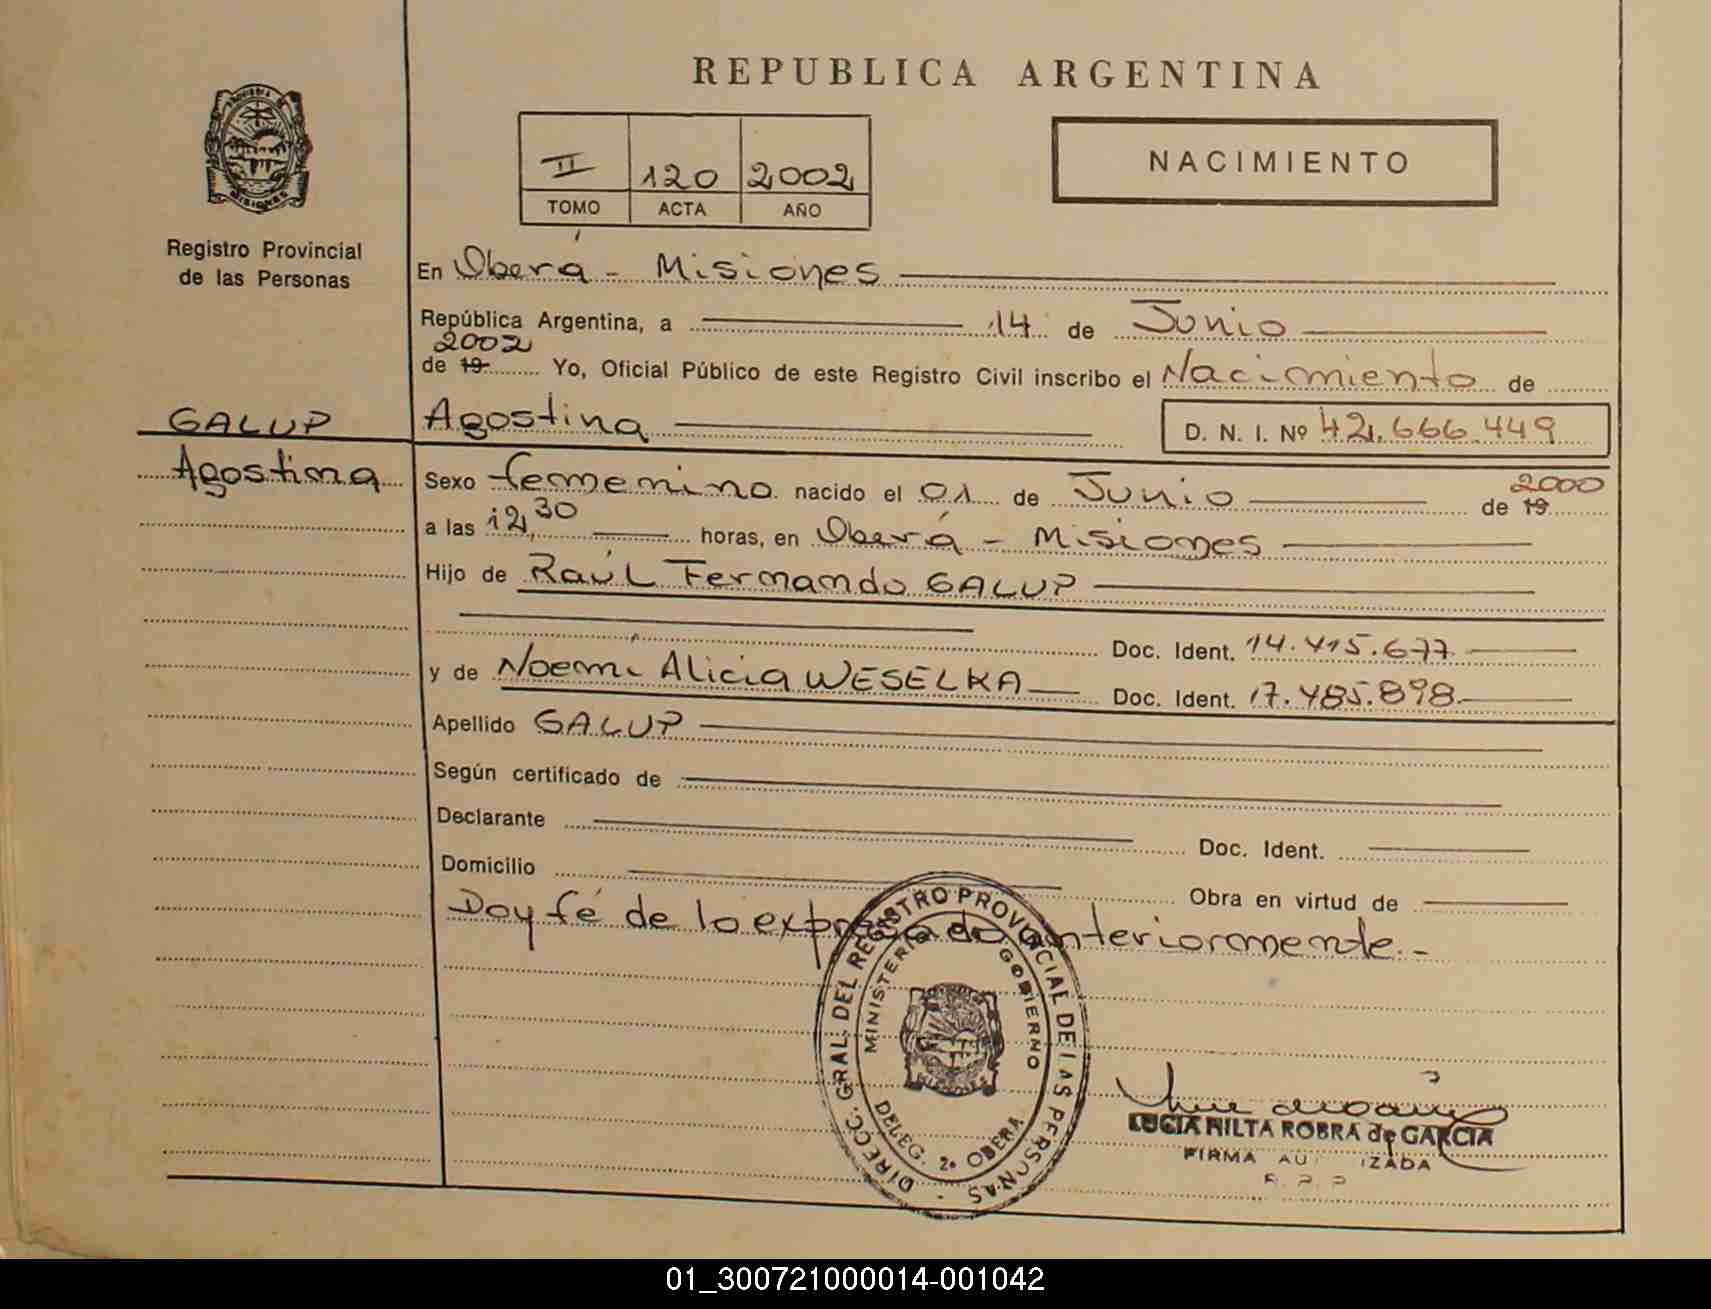 REPUBLICA ARGENTINA
II 120 2002
TOMO ACTA AÑO
NACIMIENTO
Registro Provincial
de las Personas
En Oberá - Misiones
República Argentina, a 14 de Junio
2002
de 19 Yo, Oficial Público de este Registro Civil inscribo el Nacimiento de
GALUP
Agostina
Agostina D. N. I. Nº 42.666.449
Sexo femenino nacido el 01 de Junio de 19 2000
a las 12,30 horas, en Oberá - Misiones
Hijo de Raúl Fernando GALUP
Doc. Ident. 14.415.677
y de Noemi Alicia WESELKA Doc. Ident. 17.485.898
Apellido GALUP
Según certificado de
Declarante Doc. Ident.
Domicilio Obra en virtud de
Doy fé de lo expresado anteriormente.-
DIRECC. GRAL. DEL REGISTRO PROVINCIAL DE LAS PERSONAS
MINISTERIO DE GOBIERNO
MISIONES
DELEG. 2º OBERA
LUCIA HILTA ROBRA de GARCIA
FIRMA AU IZADA
01_300721000014-001042